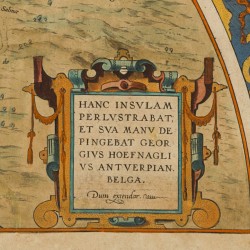 HANC INSULAM
PERLUSTRABAT,
ET SVA MANV DE
PINGEBAT GEOR
GIVS HOEFNAGLI
VS ANTVERPIAN.
BELGA.
Dum extendar